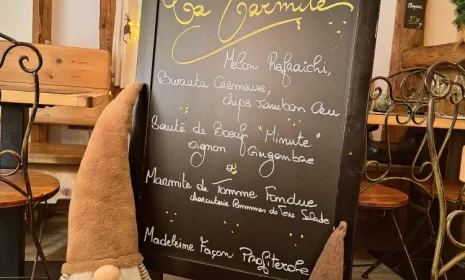 La Marmite
Melon Rafraichi,
Burrata Crémeuse,
chips Jambon Cru
Sauté de Boeuf "Minute"
oignon Gingembre
ou
Marmite de Tomme Fondue
charcuterie Pommes de Terre Salade
Madeleine Façon Profiterole